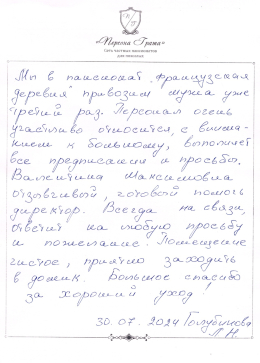 «Персона Грата»
СЕТЬ ЧАСТНЫХ ПАНСИОНАТОВ
ДЛЯ ПОЖИЛЫХ
Мы в пансионат „Французская
деревня" привозим мужа уже
третий раз. Персонал очень
участливо относится, с внима-
нием к больному, выполняет
все предписания и просьбы.
Валентина Максимовна
отзывчивый, готовый помочь
директор. Всегда на связи,
ответит на любую просьбу
и пожелание. Помещение
чистое, приятно заходить
в домик. Большое спасибо
за хороший уход!
30.07.2024 Голубинова
Л.Н.